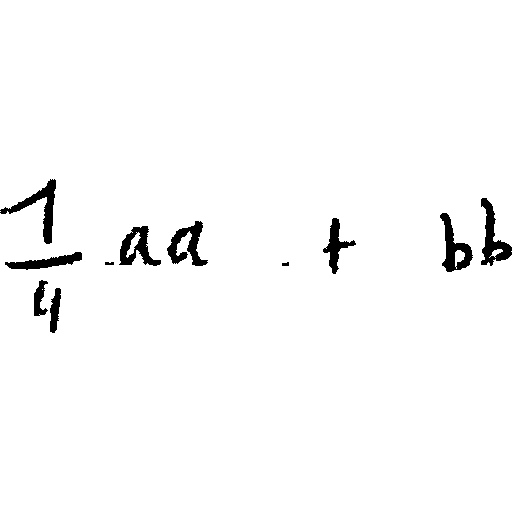 1/4 aa + bb